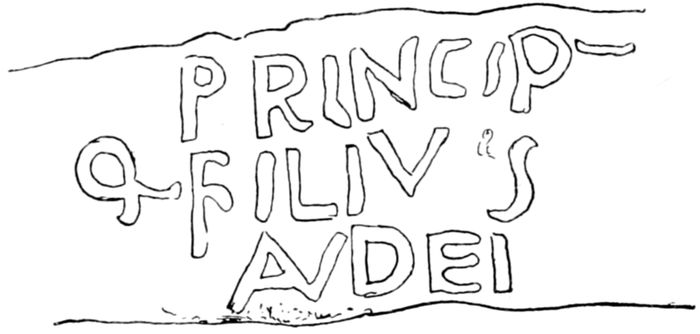 P RINCIP–
Q FILIV'S
AVDEI